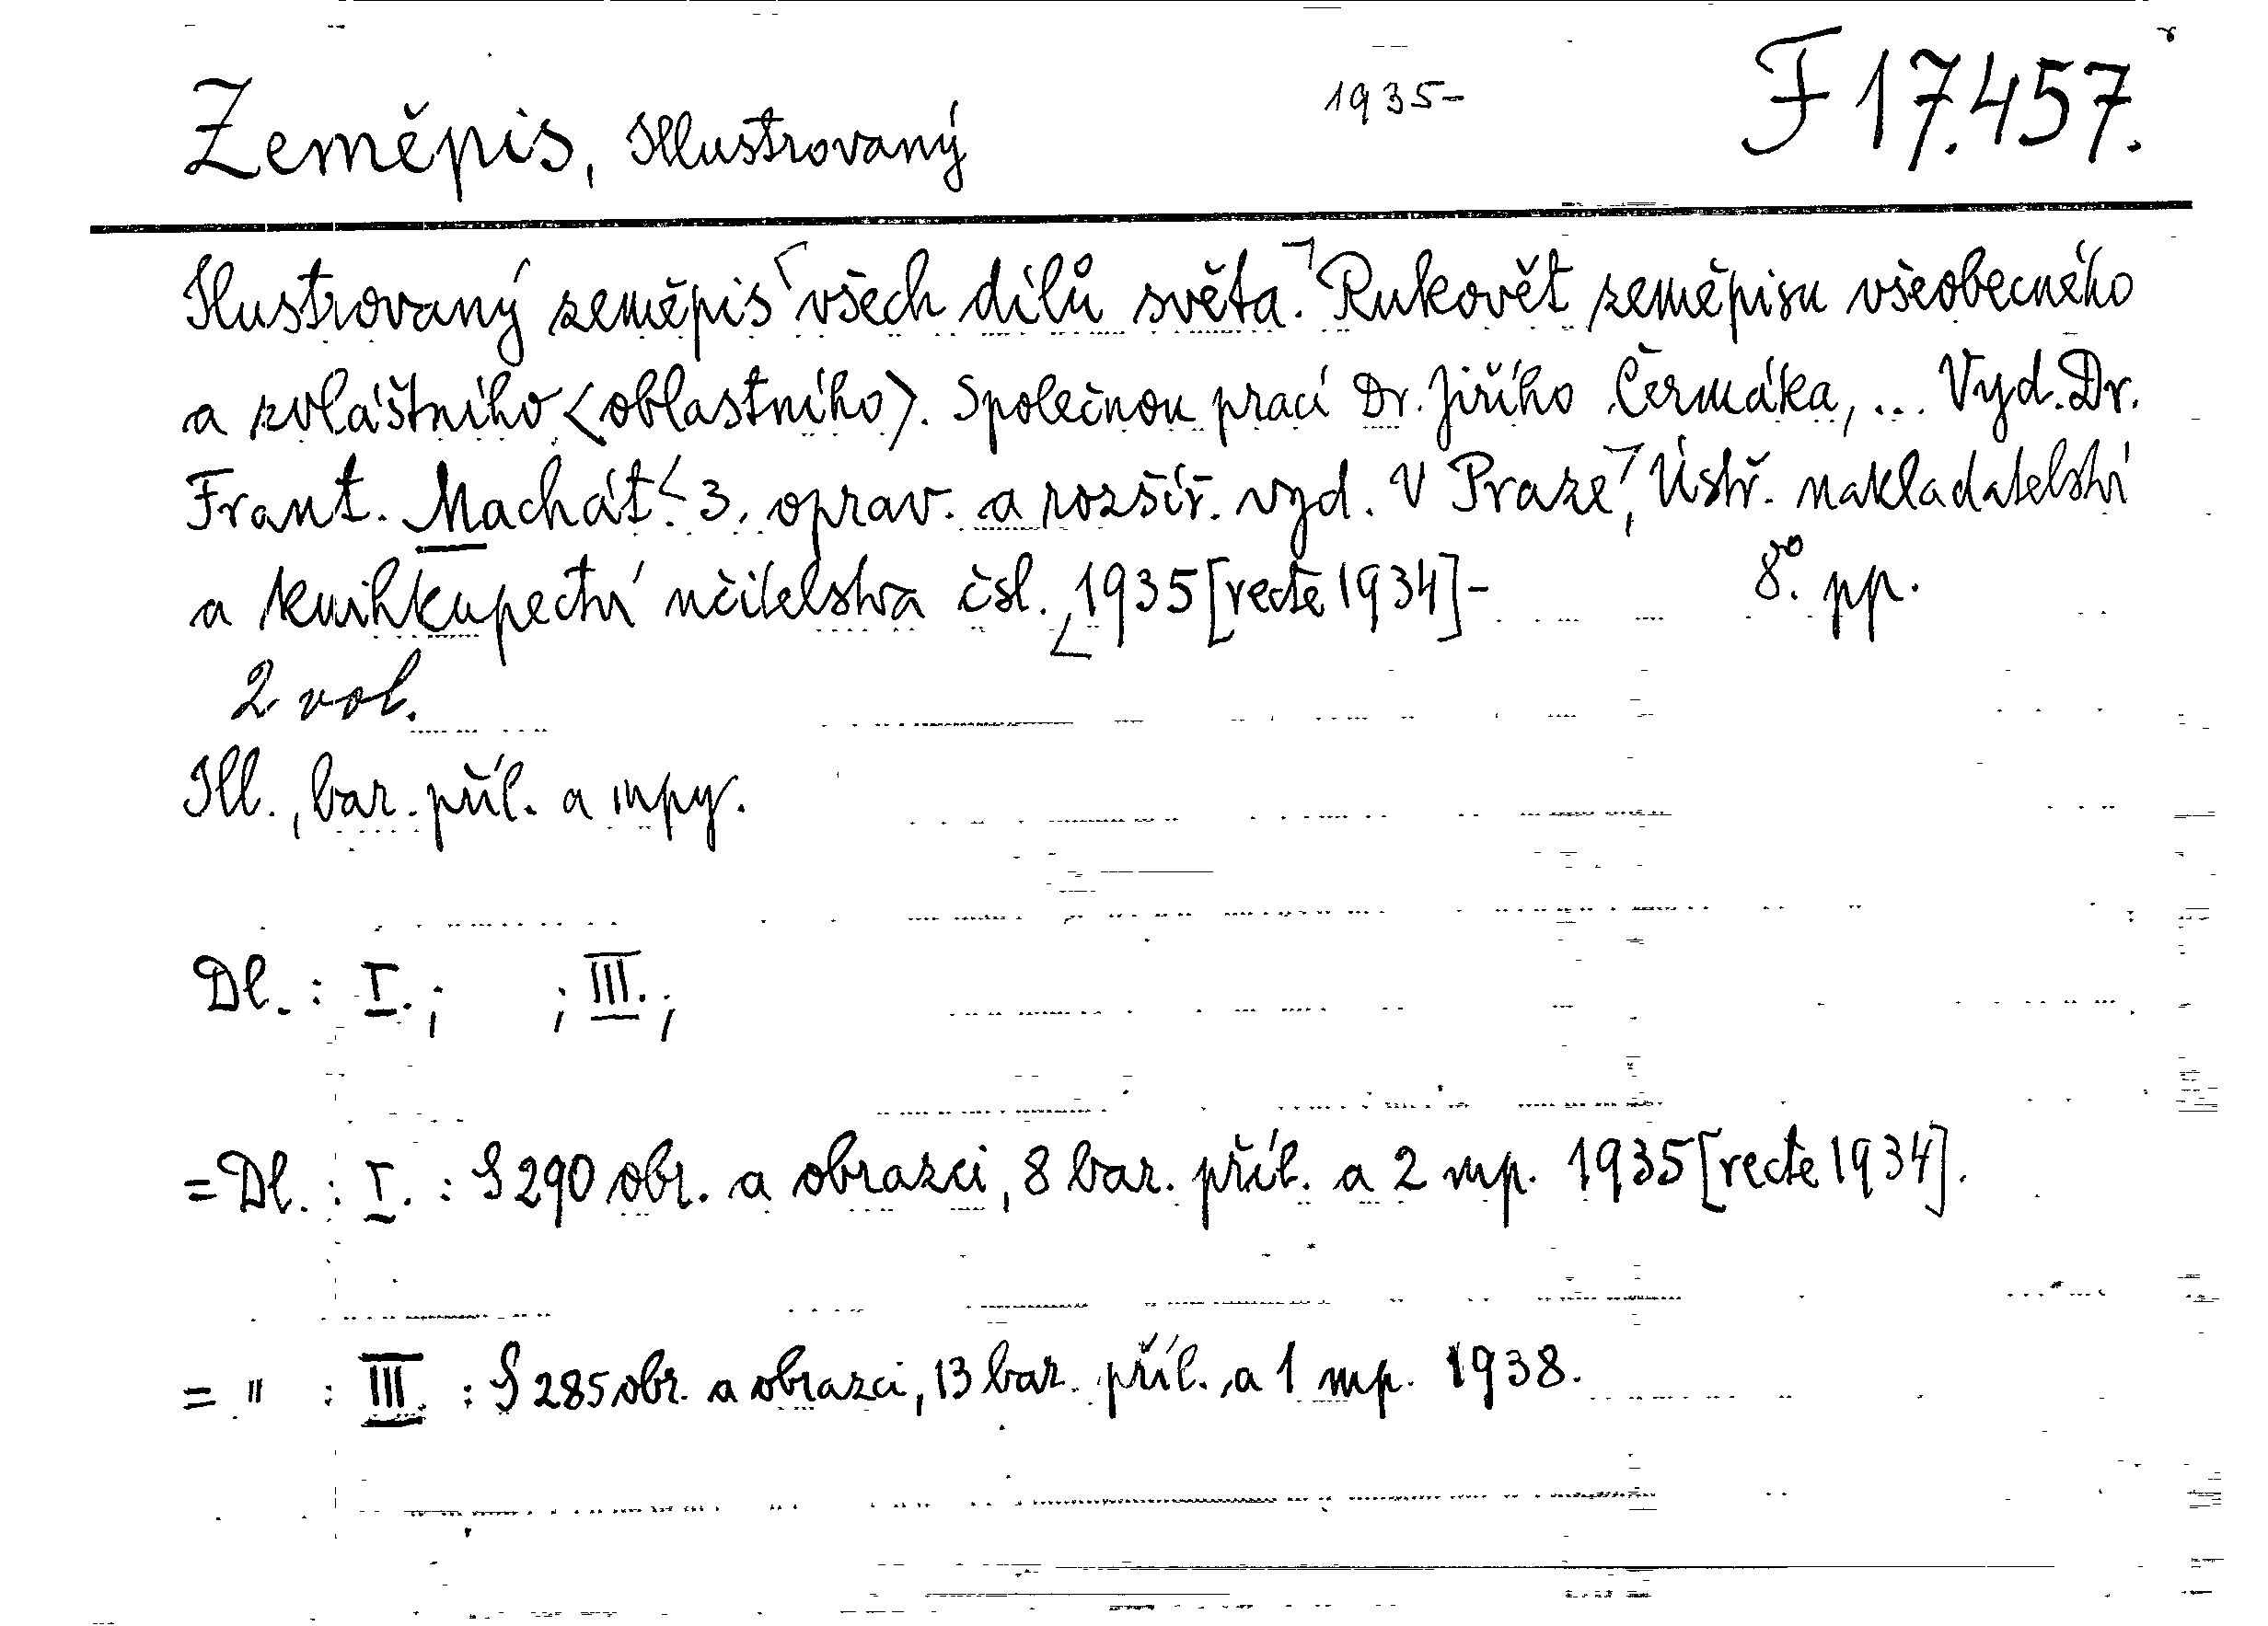 Zeměpis, Illustrovaný 1935- F 17.457.
Ilustrovaný zeměpis všech dílů světa. Rukovět zeměpisu všeobecného
a zvláštního <oblastního>. Společnou prací Dr. Jiřího Čermáka, ... Vyd. Dr.
Frant. Machát. 3. oprav. a rozšíř. vyd. V Praze, Ústř. nakladatelství
a knihkupectví učitelstva čsl. 1935 [recte 1934]- 8º. pp.
2 vol.
Ill., bar. příl. a mpy.
Dl. : I. ; ; III. ;
= Dl. : I. : S 290 obr. a obrazci, 8 bar. příl. a 2 mp. 1935 [recte 1934].
= " : III. : S 285 obr. a obrazci, 13 bar. příl. a 1 mp. 1938.